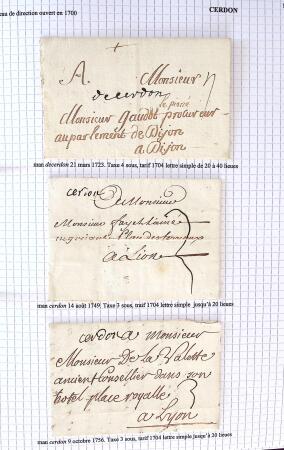 eau de direction ouvert en 1700
CERDON
A. Monsieur
decerdon
Monsieur gaudot procureur
auparlement de Dijon
a Dijon
man decerdon 21 mars 1723. Taxe 4 sous, tarif 1704 lettre simple de 20 à 40 lieues
cerdon
A Monsieur
Monsieur
a Lion
man cerdon 14 août 1749. Taxe 3 sous, tarif 1704 lettre simple jusqu'à 20 lieues
cerdon a monsieur
Monsieur De la Valette
ancien Consellier dans son
hotel place royalle
a Lyon
man cerdon 9 octobre 1756. Taxe 3 sous, tarif 1704 lettre simple jusqu'à 20 lieues